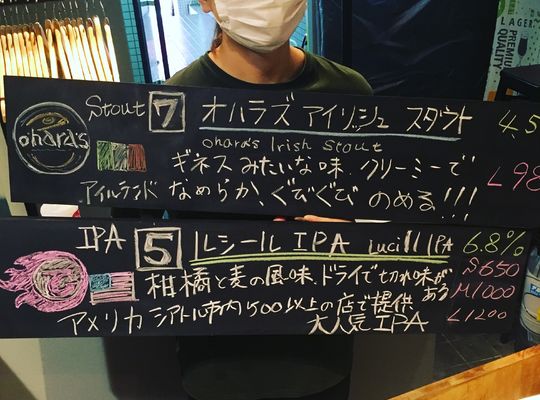 LAGER
PREMIUM
QUALITY
Stout 7 オハラズ アイリッシュ スタウト 4.5
ohara's
ohara's Irish Stout
ギネスみたいな味、クリーミーで
アイルランド なめらか、ぐびぐび のめる!!!
L98
IPA 5 ルシール IPA Lucill IPA 6.8%
柑橘と麦の風味、ドライで切れ味がある
S650
M1000
アメリカ シアトル市内500以上の店で提供
L1200
大人気IPA